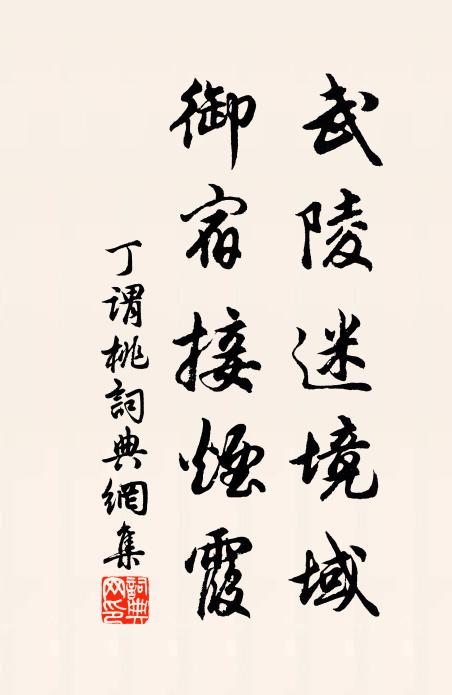 武陵迷境域
御宿接煙霞
丁谓桃詞典網集
詞典網印